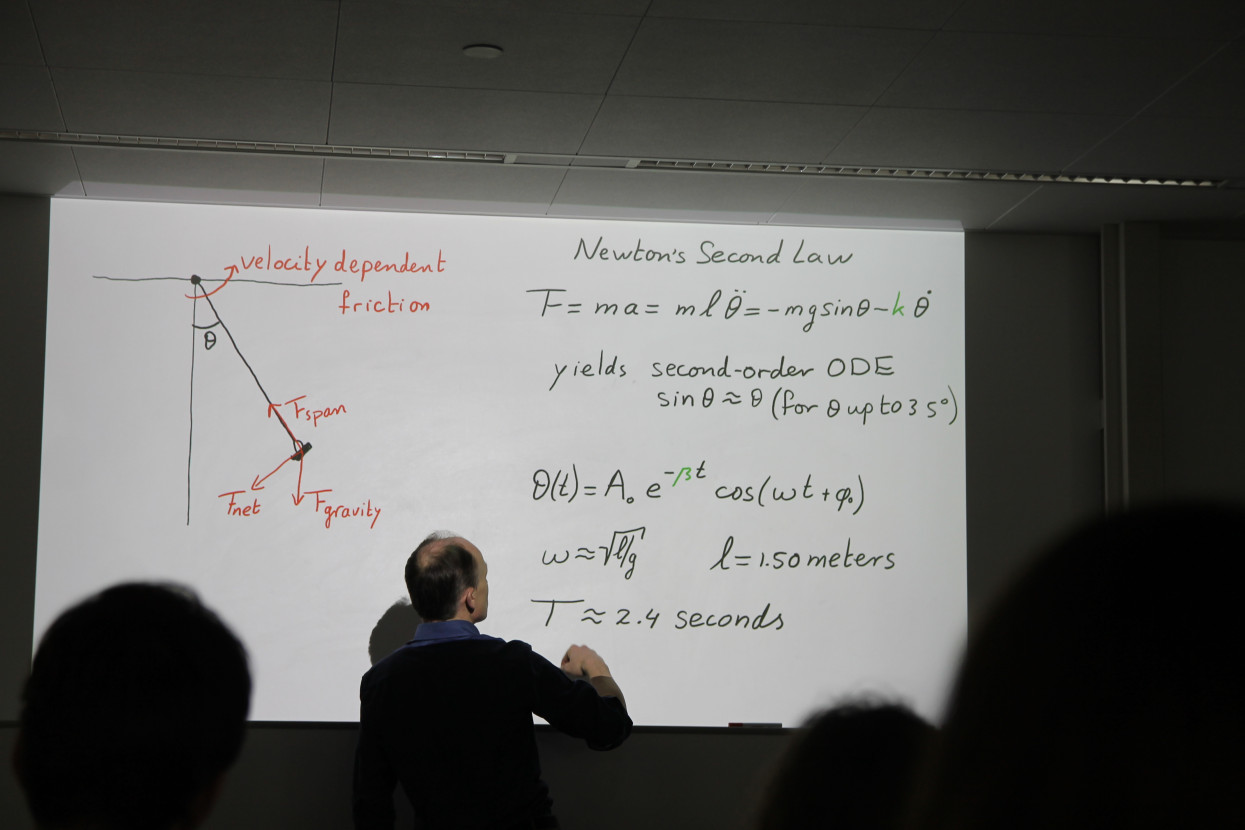 velocity dependent
friction
θ
Fspan
Fnet
Fgravity
Newton's Second Law
F = ma = mlθ̈ = -mgsinθ - kθ̇
yields second-order ODE
sinθ ≈ θ (for θ up to 35°)
θ(t) = A₀ e^-βt cos(ωt + φ₀)
ω ≈ √l/g l = 1.50 meters
T ≈ 2.4 seconds